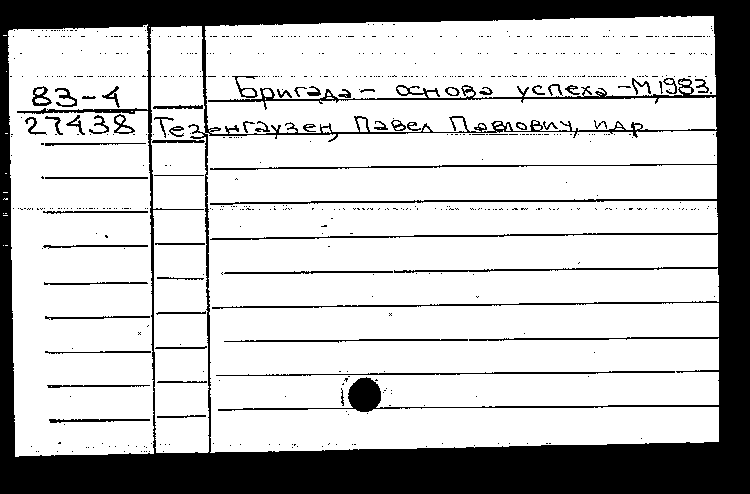 83-4
Бригада - основа успеха - М, 1983.
27438
Тезенгаузен, Павел Павлович, и др.